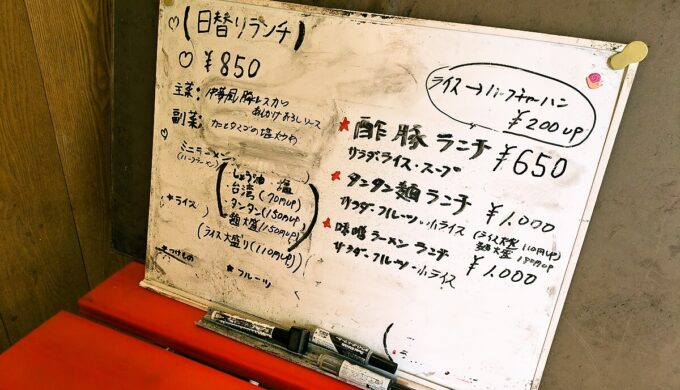 ♡(日替りランチ)
♡ ¥850
主菜: 中華風豚ヒレカツ
あんかけおろしソース
副菜: カニとタマゴの塩炒め
♡
ミニラーメン
(ハーフラーメン)
・しょう油・塩
・台湾(70円UP)
・タンタン(150円UP)
・麺大盛(150円UP)
*ライス
(ライス大盛り(110円UP))
*つけもの
*フルーツ
ライス→ハーフチャーハン
¥200UP
★酢豚ランチ ¥650
サラダ・ライス・スープ
★タンタン麺ランチ ¥1.000
サラダ・フルーツ・小ライス (ライス大盛110円UP
麺大盛150円UP)
★味噌ラーメンランチ
サラダ・フルーツ・小ライス ¥1.000